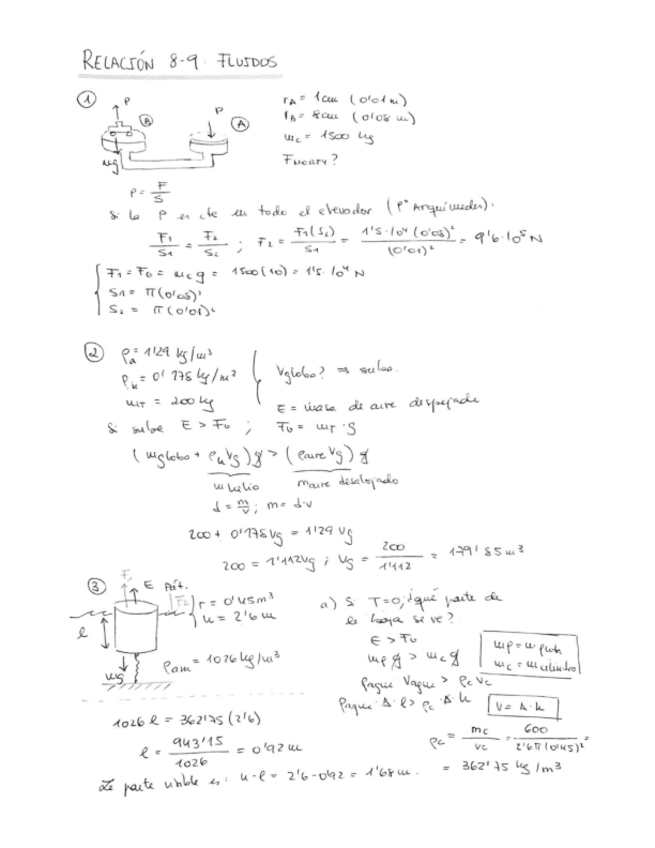 RELACIÓN 8-9: FLUIDOS
1
P
P
B
A
mg
rA = 1cm (0'01 m)
rB = 8cm (0'08 m)
mc = 1500 kg
FNORTH?
P = F/S
Si la P es cte en todo el elevador (Pº Arquímedes).
F1/S1 = F2/S2 ; F2 = F1(S2)/S1 = 1'5·10⁴ (0'08)²/(0'01)² = 9'6·10⁵ N
F1 = FG = mc g = 1500(10) = 1'5·10⁴ N
S1 = π(0'08)²
S2 = π(0'01)²
2
ρa = 1'29 kg/m³
ρH = 0'178 kg/m³
mT = 200 kg
Vglobo? ⇒ suba.
E = masa de aire despejada
Si sube E > FG ; FG = mT · g
(mglobo + ρH Vg) g > (ρaire Vg) g
m helio
maire desalojado
d = m/v ; m = d·v
200 + 0'178Vg = 1'29 Vg
200 = 1'112Vg ; Vg = 200/1'112 = 179'85 m³
3
E
Pat.
l
mg
r = 0'45 m³
h = 2'6 m
ρam = 1026 kg/m³
a) Si T=0, ¿qué parte de
la boya se ve?
E > FG
mF g > mc g
ρagua Vagua > ρc Vc
ρagua · A · l > ρc · A · h
mc = mcilindro
V = A·h
ρc = mc/Vc = 600/2'6π(0'45)² =
= 362'75 kg/m³
1026 l = 362'75 (2'6)
l = 943'15/1026 = 0'92 m
La parte visible es: h-l = 2'6-0'92 = 1'68 m.